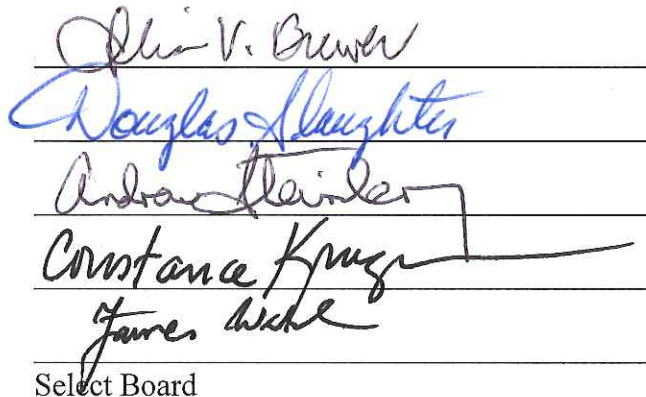 V. Brewer
Douglas Slaughter
Andrew
Constance Kruger
James Wald
Select Board